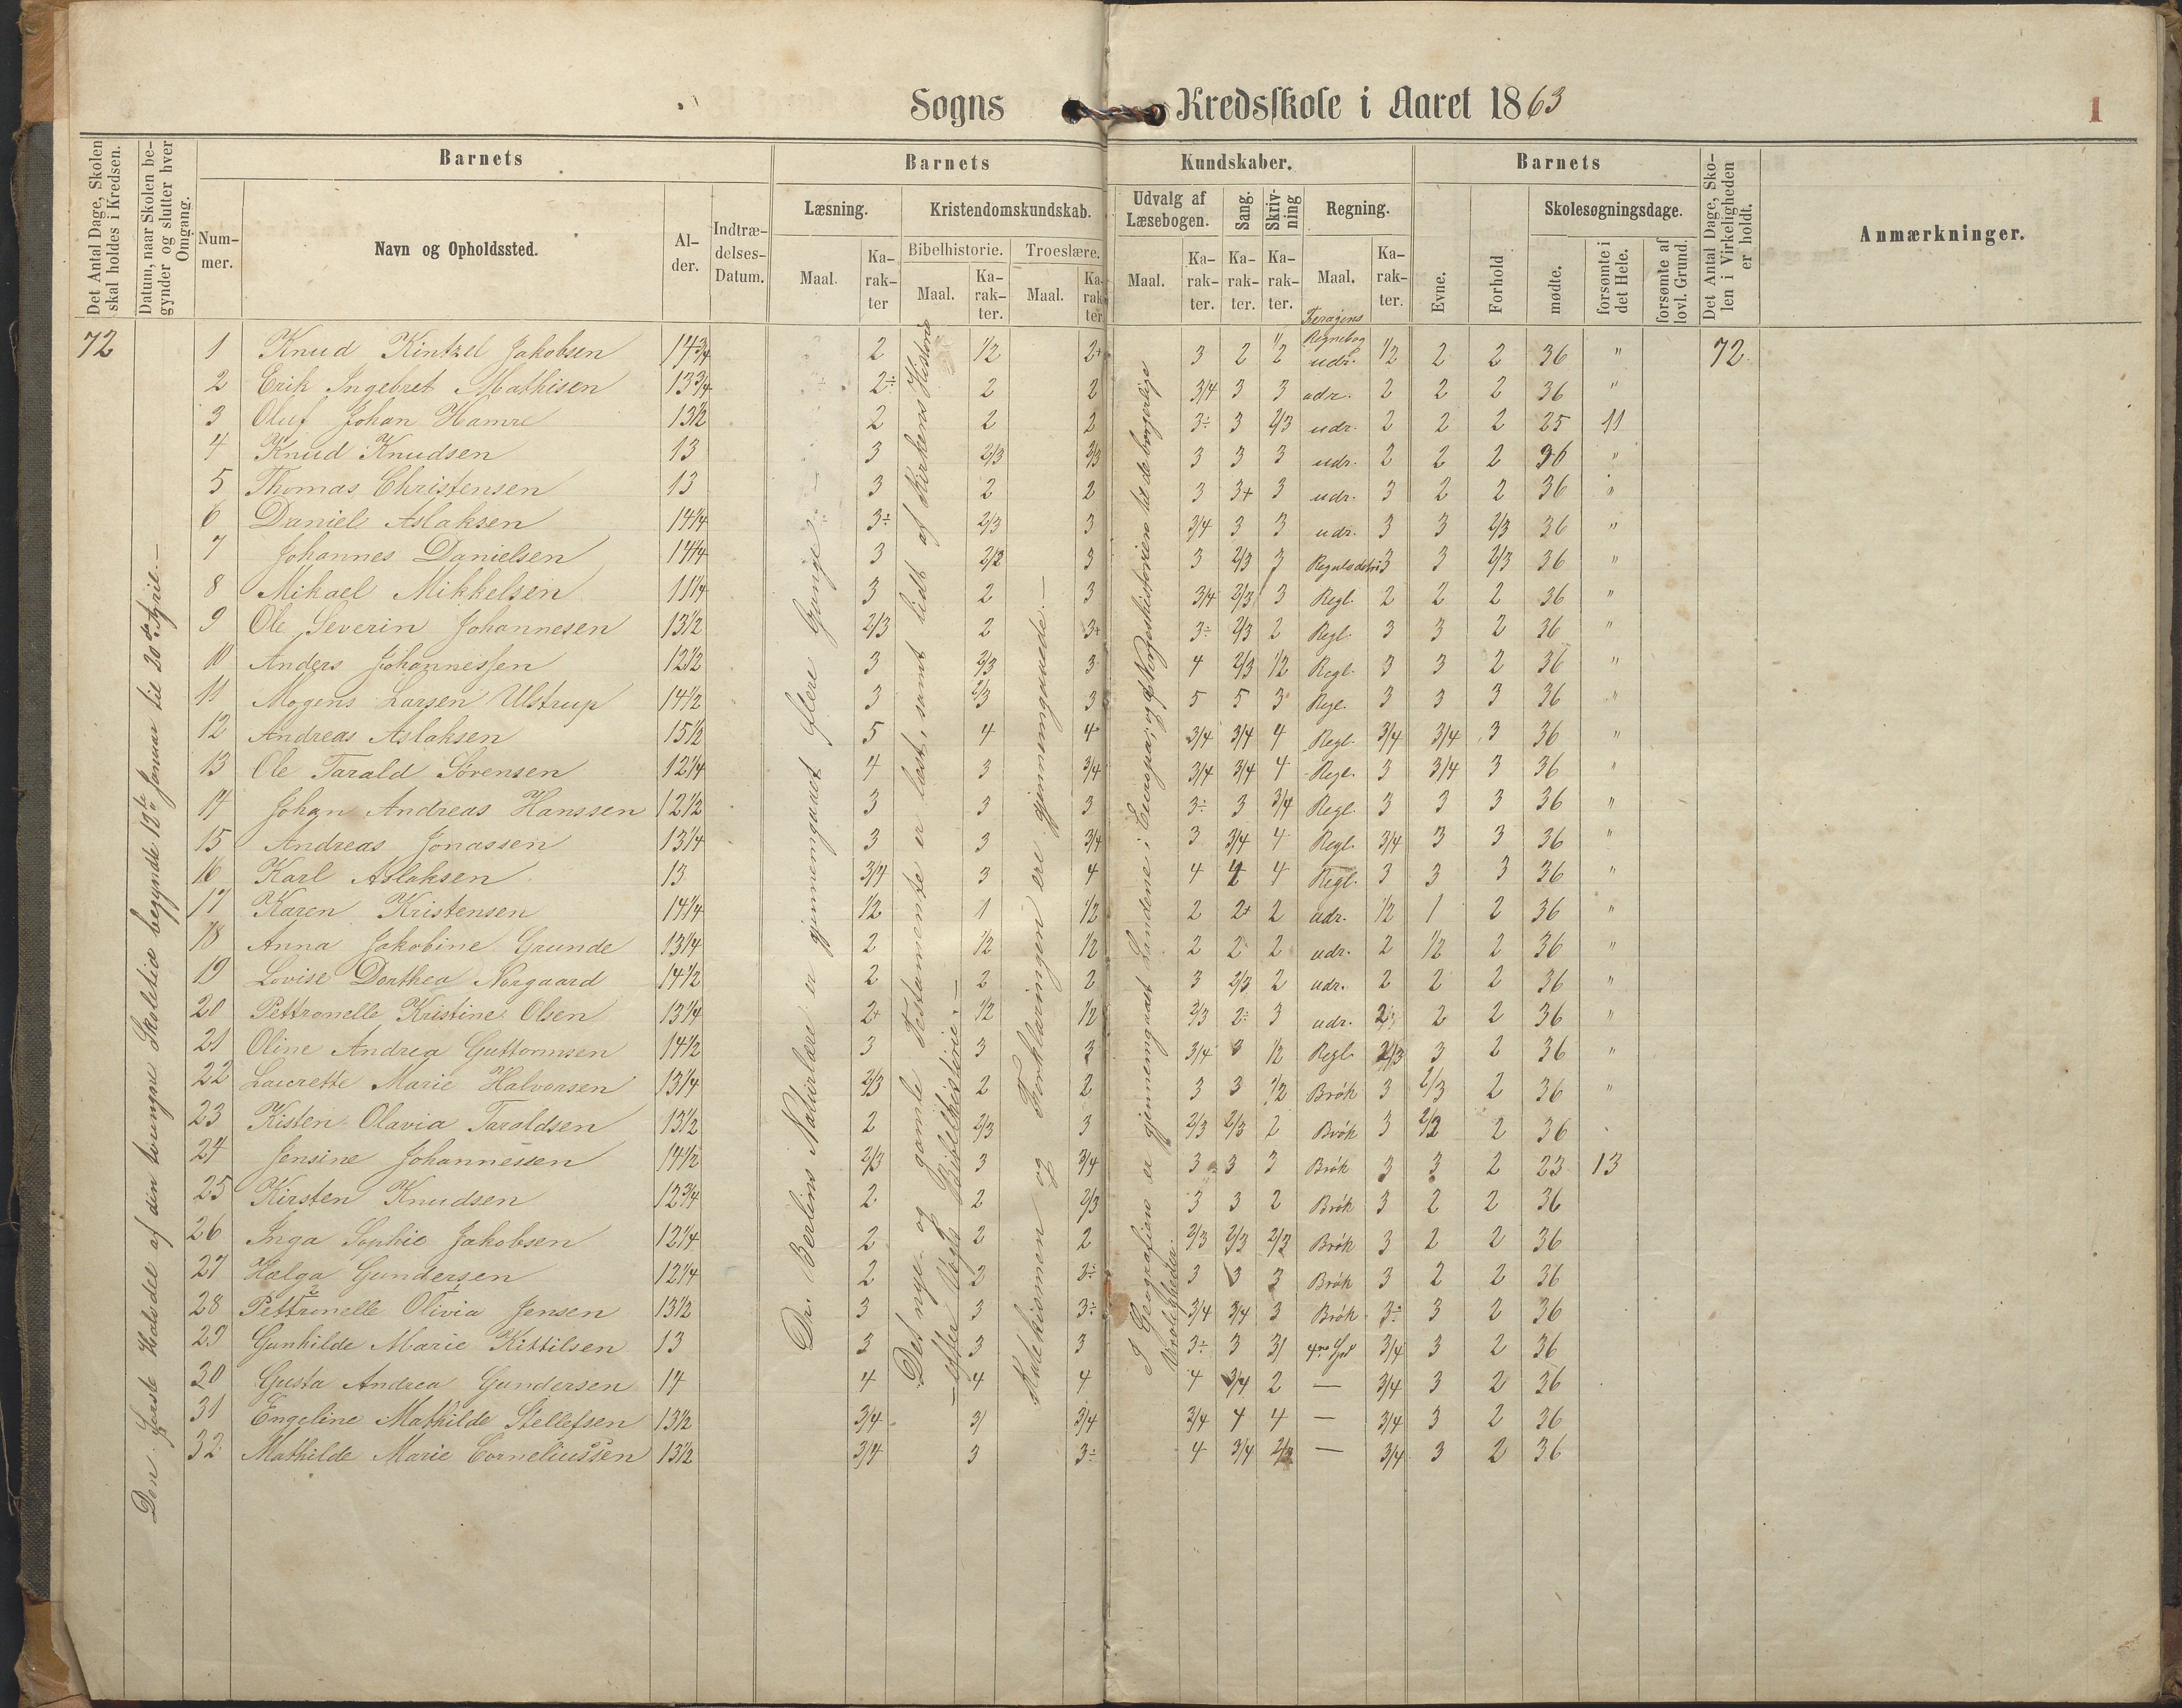 Sogns Kredsskole i Aaret 1863
1
Det Antal Dage, Skolen skal holdes i Kredsen.
Datum, naar Skolen begynder og slutter hver Omgang.
Barnets
Nummer.
Navn og Opholdssted.
Alder.
Indtrædelses-Datum.
Barnets Kundskaber.
Læsning.
Maal.
Karakter
Kristendomskundskab.
Bibelhistorie.
Maal.
Karakter.
Troeslære.
Maal.
Karakter
Udvalg af Læsebogen.
Maal.
Karakter.
Sang.
Karakter.
Skrivning
Karakter.
Regning.
Maal.
Karakter.
Barnets
Evne.
Forhold
Skolesøgningsdage.
mødte.
forsømte i det Hele.
forsømte af lovl. Grund.
Det Antal Dage, Skolen i Virkeligheden er holdt.
Anmærkninger.
Den første Halvdel af den tvungne Skoletid begyndte 12te Januar til 20de April.—
Dr. Berlins Naturlære er gjennemgaaet flere Gange.—
Det nye og gamle Testamente er læst, samt lidt af Kirkens Historie
efter Vogts Bibelhistorie.—
Katekismen og Forklaringen ere gjennemgaaede.—
I Geografien er gjennemgaaet Landene i Europa; og af Norgeshistorien til de borgerlige
Uroligheder.
72 1 Knud Kintzel Jakobsen 14¾ 2 1/2 2+ 3 2 1/2 Regnebog udr. 1/2 2 2 36 " 72
2 Erik Ingebret Mathisen 13¾ 2÷ 2 2 3/4 3 3 udr. 2 2 2 36 "
3 Oluf Johan Hamre 13½ 2 2 2 3÷ 3 2/3 udr. 2 2 2 25 11
4 Knud Knudsen 13 3 2/3 2/3 3 3 3 udr. 2 2 2 36 "
5 Thomas Christensen 13 3 2 2 3 3+ 3 udr. 3 2 2 36 "
6 Daniel Aslaksen 14¼ 3÷ 2/3 3 3/4 3 3 udr. 3 3 2/3 36 "
7 Johannes Danielsen 14¼ 3 2/3 3 3 2/3 3 Reguladetri 3 3 2/3 36 "
8 Mikael Mikkelsen 11¼ 3 2 3 3/4 2/3 3 Regl. 2 2 2 36 "
9 Ole Severin Johannesen 13½ 2/3 2 3+ 3÷ 2/3 2 Regl. 3 3 2 36 "
10 Anders Johannessen 12½ 3 2/3 3 4 2/3 1/2 Regl. 3 3 2 36 "
11 Mogens Larsen Ulstrup 14½ 3 2/3 3 5 5 3 Regl. 3 3 3 36 "
12 Andreas Aslaksen 15½ 5 4 4 3/4 3/4 4 Regl. 3/4 3/4 3 36 "
13 Ole Tarald Sørensen 12¼ 4 3 3/4 3/4 3/4 4 Regl. 3 3/4 3 36 "
14 Johan Andreas Hanssen 12½ 3 3 3 3÷ 3 3/4 Regl. 3 3 3 36 "
15 Andreas Jonassen 13¼ 3 3 3/4 3 3/4 4 Regl. 3/4 3 3 36 "
16 Karl Aslaksen 13 3/4 3 4 4 4 4 Regl. 3 3 3 36 "
17 Karen Kristensen 14¼ 1/2 1 1/2 2 2+ 2 udr. 1/2 1 2 36 "
18 Anna Jakobine Grunde 13¼ 2 1/2 1/2 2 2÷ 2 udr. 2 1/2 2 36 "
19 Lovise Dorthea Norgaard 14½ 2 2 2 3 2/3 2 udr. 2 2 2 36 "
20 Pettronelle Kristine Olsen 13¼ 2+ 1/2 1/2 2/3 2÷ 3 udr. 2/3 2 2 36 "
21 Oline Andrea Guttormsen 14½ 3 3 3 3/4 3 1/2 Regl. 2/3 3 2 36 "
22 Laurette Marie Halvorsen 13¼ 2/3 2 2 3 3 1/2 Brøk 3 2/3 2 36 "
23 Kisten Olavia Taraldsen 13½ 2 2/3 3 2/3 2/3 2 Brøk 3 2/3 2 36
24 Jensine Johannessen 14½ 2/3 3 3/4 3 3 3 Brøk 3 3 2 23 13
25 Kirsten Knudsen 12¾ 2 2 2/3 3 3 2 Brøk 3 2 2 36
26 Inga Sophie Jakobsen 12¼ 2 2 2 2/3 2/3 2/3 Brøk 3 2 2 36
27 Hælga Gundersen 12¼ 2 2 2÷ 3 3 3 Brøk 3 2 2 36
28 Pettronelle Olivia Jensen 13½ 3 3 3÷ 3/4 3/4 3 Brøk 3÷ 3 2 36
29 Gunhilde Marie Kittilsen 13 3 3 3 3÷ 3 3/ 3/4 3 2 36
30 Gusta Andrea Gundersen 14 4 4 4 4 3/4 2 — 3/4 3 2 36
31 Engeline Mathilde Stellefsen 13½ 3/4 3/ 3/4 3/4 4 4 — 3/4 3 2 36
32 Mathilde Marie Corneliussen 13½ 3/4 3 3÷ 4 3/4 2/3 — 3/4 3 2 36